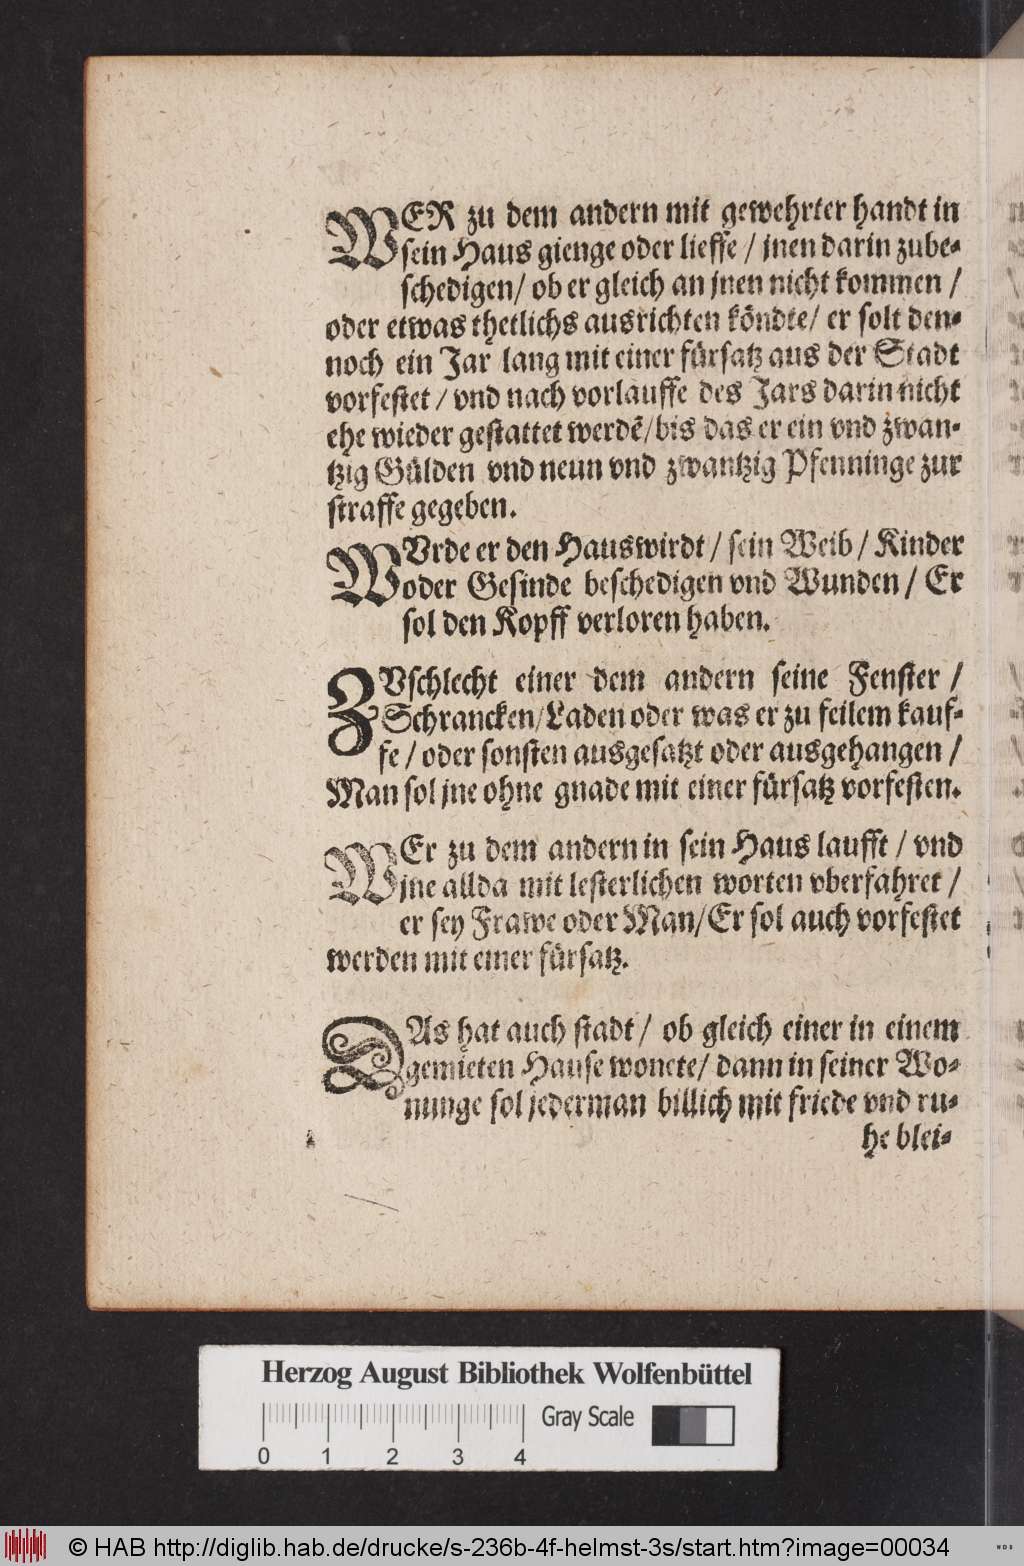 WER zu dem andern mit gewehrter handt in
sein Haus gienge oder lieffe / jnen darin zube⸗
schedigen/ ob er gleich an jnen nicht kommen /
oder etwas thetlichs ausrichten köndte/ er solt den⸗
noch ein Jar lang mit einer fürsatz aus der Stadt
vorfestet / vnd nach vorlauffe des Jars darin nicht
ehe wieder gestattet werdē/bis das er ein vnd zwan⸗
tzig Gülden vnd neun vnd zwantzig Pfenninge zur
straffe gegeben.
WVrde er den Hauswirdt / sein Weib / Kinder
oder Gesinde beschedigen vnd Wunden / Er
sol den Kopff verloren haben.
ZVschlecht einer dem andern seine Fenster /
Schrancken/Laden oder was er zu feilem kauf⸗
fe / oder sonsten ausgesatzt oder ausgehangen /
Man sol jne ohne gnade mit einer fürsatz vorfesten.
WEr zu dem andern in sein Haus laufft / vnd
jne allda mit lesterlichen worten vberfahret /
er sey Frawe oder Man/Er sol auch vorfestet
werden mit einer fürsatz.
DAs hat auch stadt / ob gleich einer in einem
gemieten Hause wonete/ dann in seiner Wo⸗
nunge sol jederman billich mit friede vnd ru⸗
he blei⸗
Herzog August Bibliothek Wolfenbüttel
Gray Scale
0 1 2 3 4
© HAB http://diglib.hab.de/drucke/s-236b-4f-helmst-3s/start.htm?image=00034